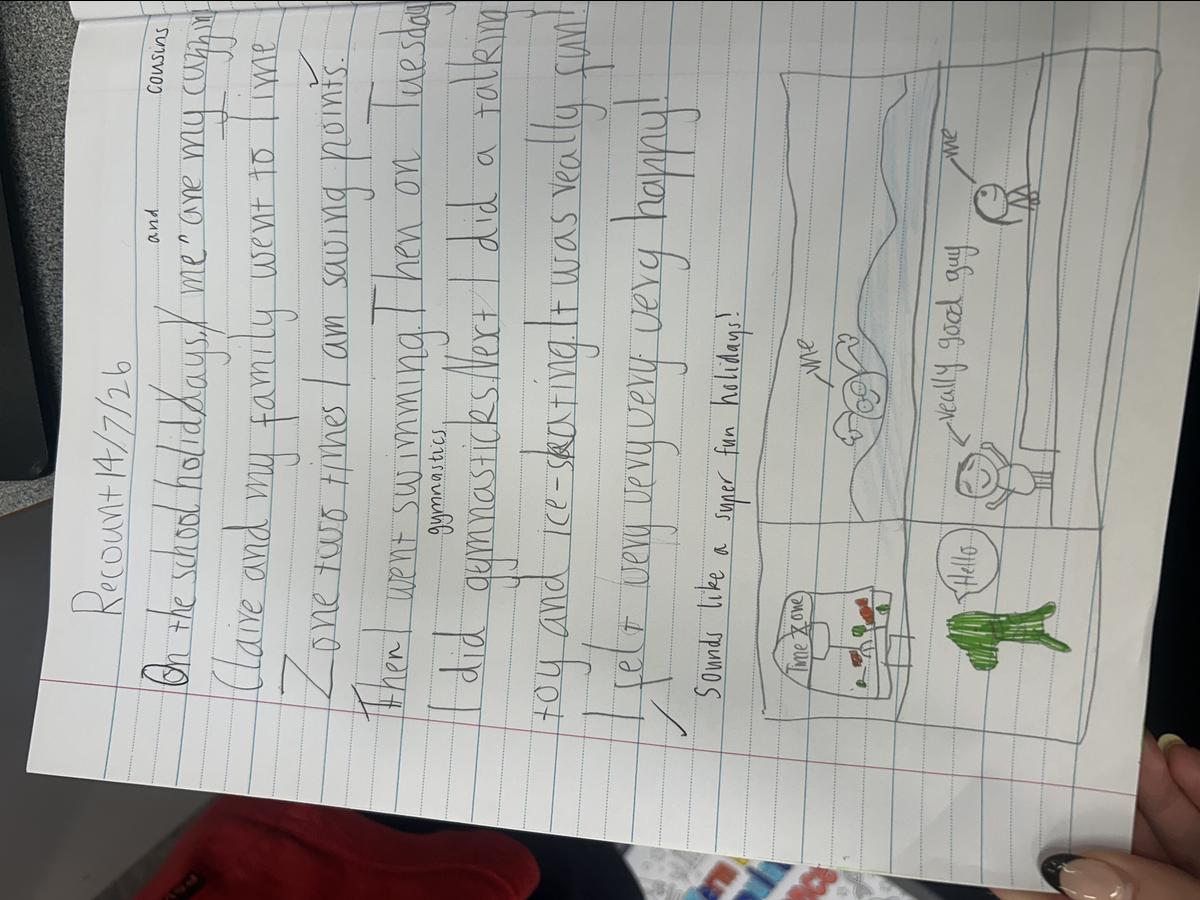 Recount 14/7/26
and cousins
On the school holidays, me are my cuzzin
Claire and my family went to Time
Zone two times I am saving points.
Then I went swimming. Then on Tuesday
gymnastics
I did gymnasticks. Next I did a talking
toy and ice-skating. It was really fun!
I felt very very very very happy!
Sounds like a super fun holidays!
Time Zone
me
Hello
really good guy
me